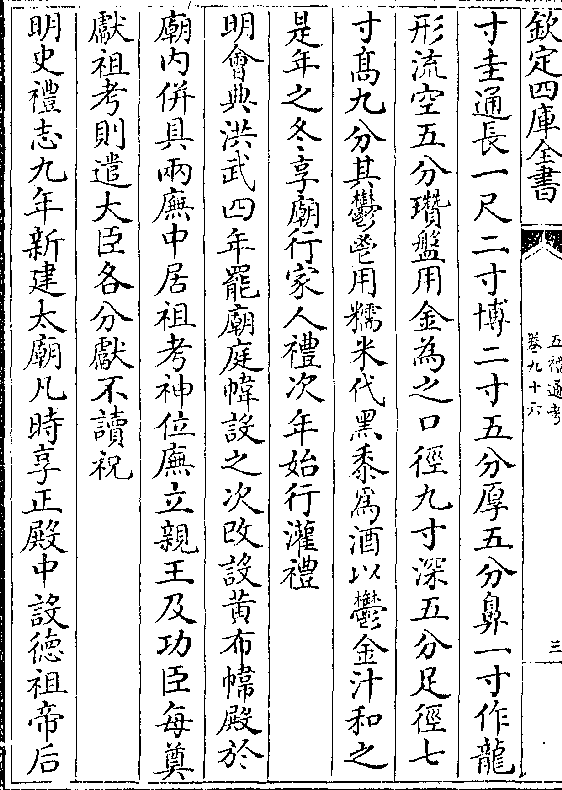 欽定四庫全書
五禮通考
卷九十六
三
寸圭通長一尺二寸博二寸五分厚五分鼻一寸作龍
形流空五分瓚盤用金為之口徑九寸深五分足徑七
寸髙九分其鬱鬯用糯米代黑黍為酒以鬱金汁和之
是年之冬享廟行家人禮次年始行灌禮
明會典洪武四年罷廟庭幃設之次改設黄布幃殿於
廟内併具兩廡中居祖考神位廡立親王及功臣每奠
獻祖考則遣大臣各分獻不讀祝
明史禮志九年新建太廟凡時享正殿中設德祖帝后